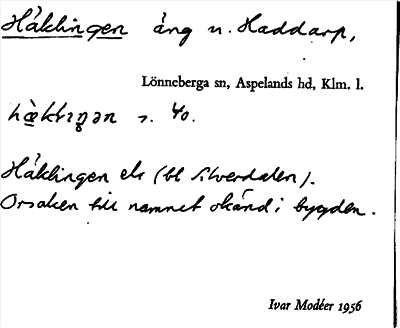 Håklingen äng n. Haddarp,
Lönneberga sn, Aspelands hd, Klm. l.
s. 40.
Håklingen els (bl Silverdalen).
Orsaken till namnet okänd i bygden.
Ivar Modéer 1956